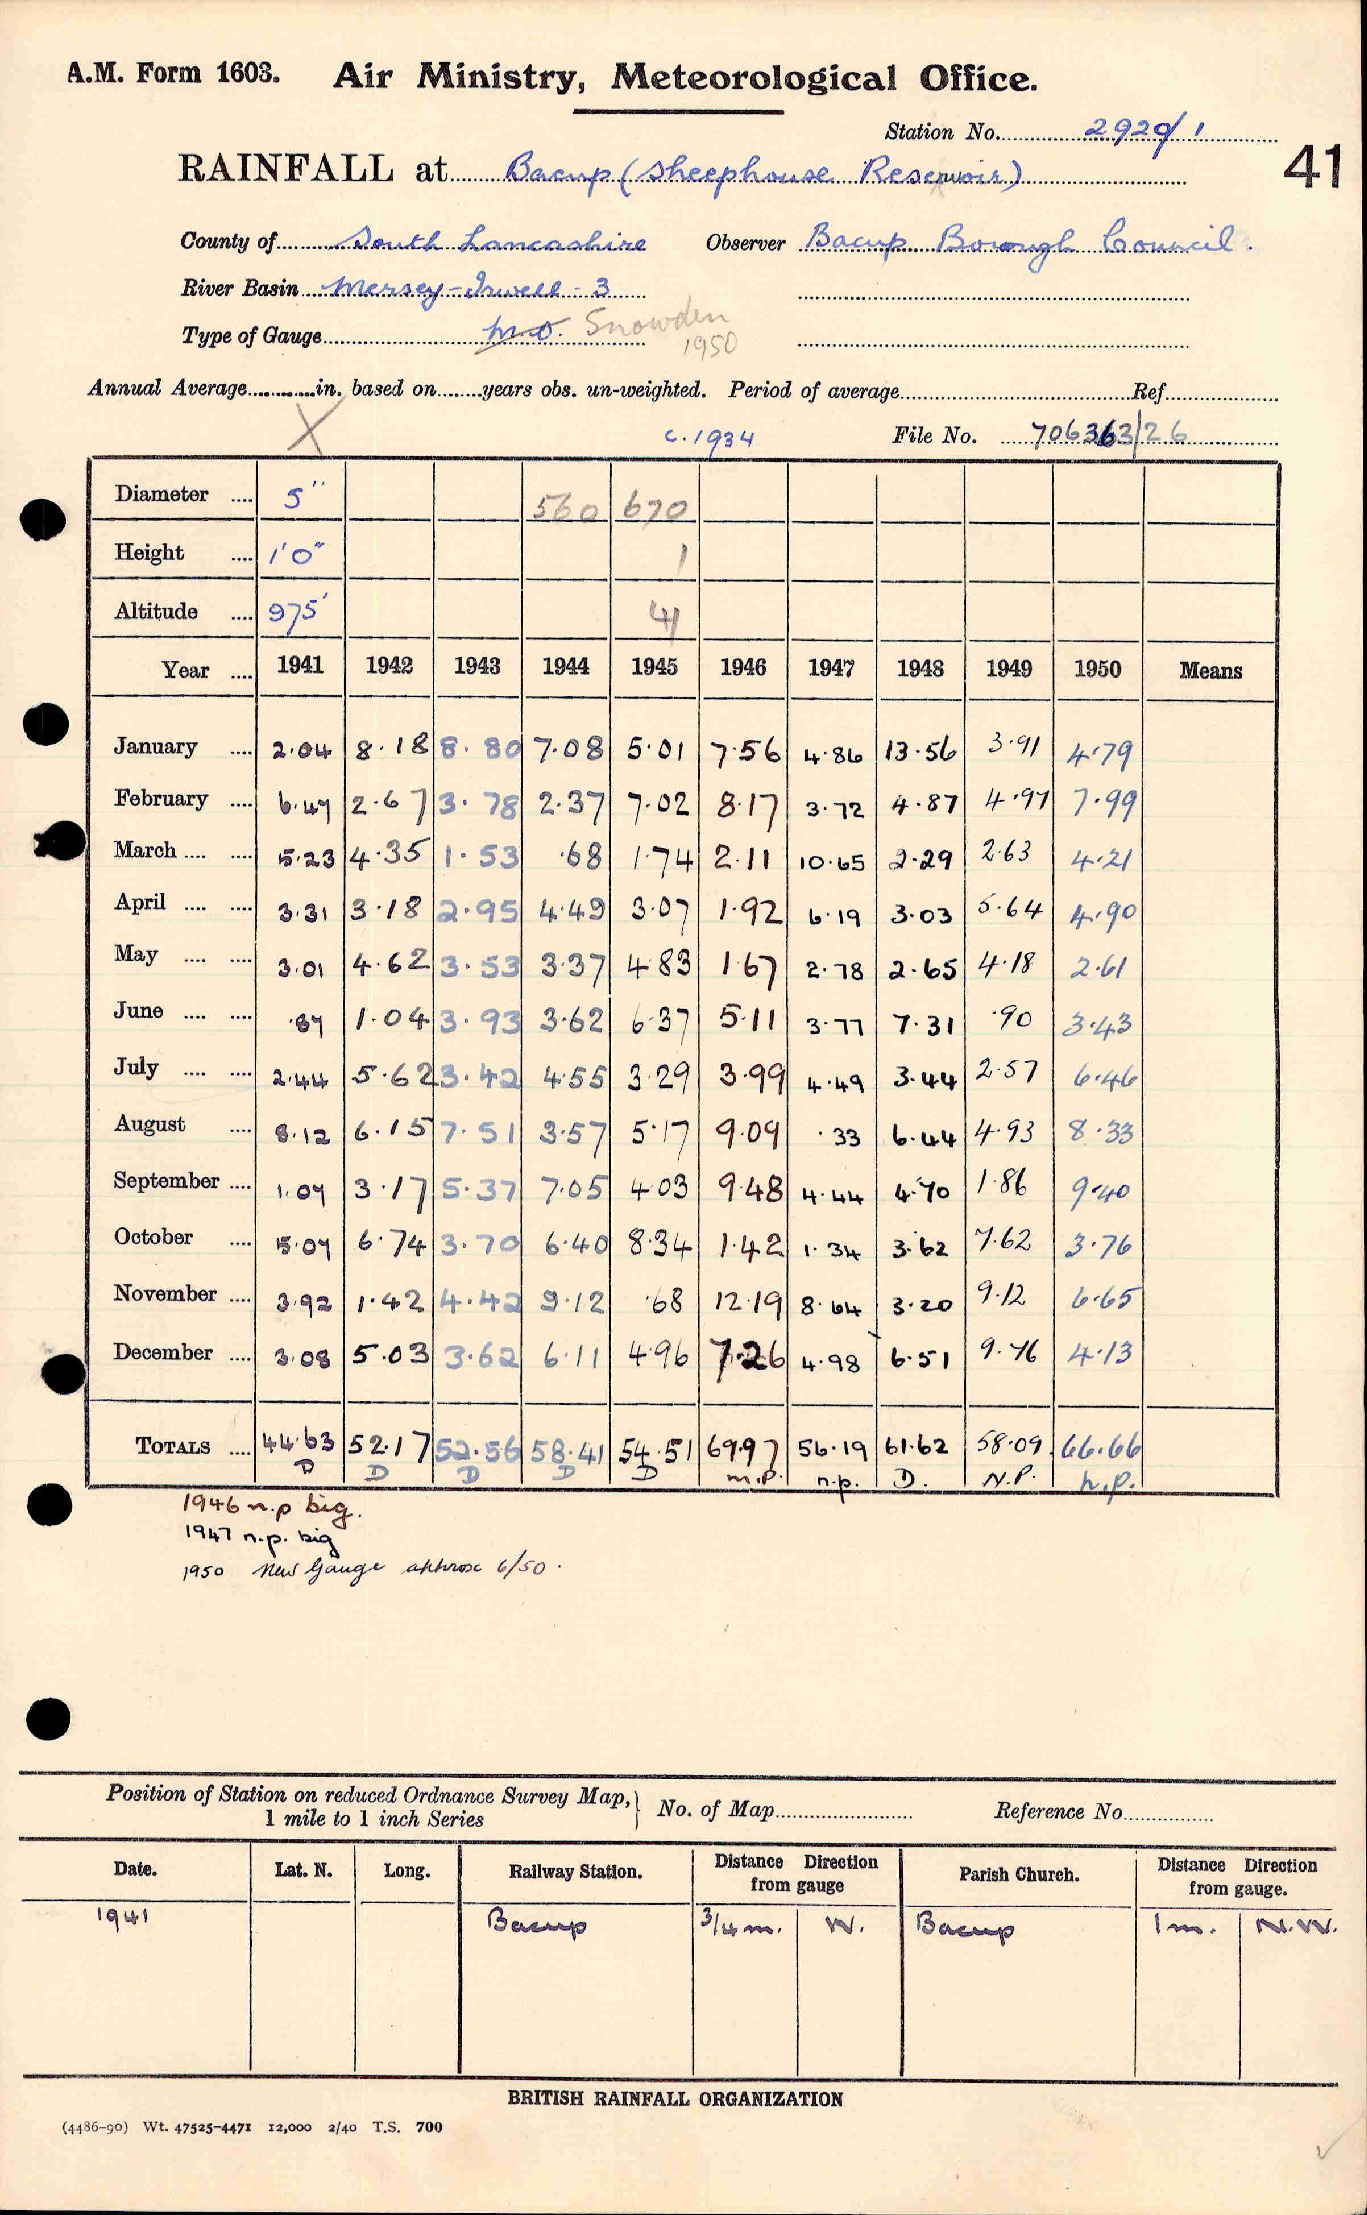 A.M. Form 1603. Air Ministry, Meteorological Office.
Station No. 2920/1
41
RAINFALL at Bacup (Sheephouse Reservoir)
County of South Lancashire Observer Bacup Borough Council.
River Basin Mersey-Irwell-3
Type of Gauge M.O. Snowden
1950
Annual Average............in. based on........years obs. un-weighted. Period of average Ref
X c.1934 File No. 706363/26
Diameter .... 5" 560 670
Height .... 1'0" 1
Altitude .... 975' 41
Year .... 1941 1942 1943 1944 1945 1946 1947 1948 1949 1950 Means
January .... 2.04 8.18 8.80 7.08 5.01 7.56 4.86 13.56 3.91 4.79
February .... 6.47 2.67 3.78 2.37 7.02 8.17 3.72 4.87 4.97 7.99
March .... .... 5.23 4.35 1.53 .68 1.74 2.11 10.65 2.29 2.63 4.21
April .... .... 3.31 3.18 2.95 4.49 3.07 1.92 6.19 3.03 5.64 4.90
May .... .... 3.01 4.62 3.53 3.37 4.83 1.67 2.78 2.65 4.18 2.61
June .... .... .87 1.04 3.93 3.62 6.37 5.11 3.77 7.31 .90 3.43
July .... .... 2.44 5.62 3.42 4.55 3.29 3.99 4.49 3.44 2.57 6.46
August .... 8.12 6.15 7.51 3.57 5.17 9.09 .33 6.44 4.93 8.33
September .... 1.07 3.17 5.37 7.05 4.03 9.48 4.44 4.70 1.86 9.40
October .... 5.07 6.74 3.70 6.40 8.34 1.42 1.34 3.62 7.62 3.76
November .... 3.92 1.42 4.42 9.12 .68 12.19 8.64 3.20 9.12 6.65
December .... 3.08 5.03 3.62 6.11 4.96 7.26 4.98 6.51 9.76 4.13
TOTALS .... 44.63 52.17 52.56 58.41 54.51 69.97 56.19 61.62 58.09 66.66
D D D D D m.p. n.p. D. N.P. n.p.
1946 n.p big.
1947 n.p. big
1950 New Gauge approx 6/50.
Position of Station on reduced Ordnance Survey Map,
1 mile to 1 inch Series
No. of Map Reference No
Date. Lat. N. Long. Railway Station. Distance Direction from gauge Parish Church. Distance Direction from gauge.
1941 Bacup 3/4 m. W. Bacup 1 m. N.W.
BRITISH RAINFALL ORGANIZATION
(4486-90) Wt. 47525-4471 12,000 2/40 T.S. 700